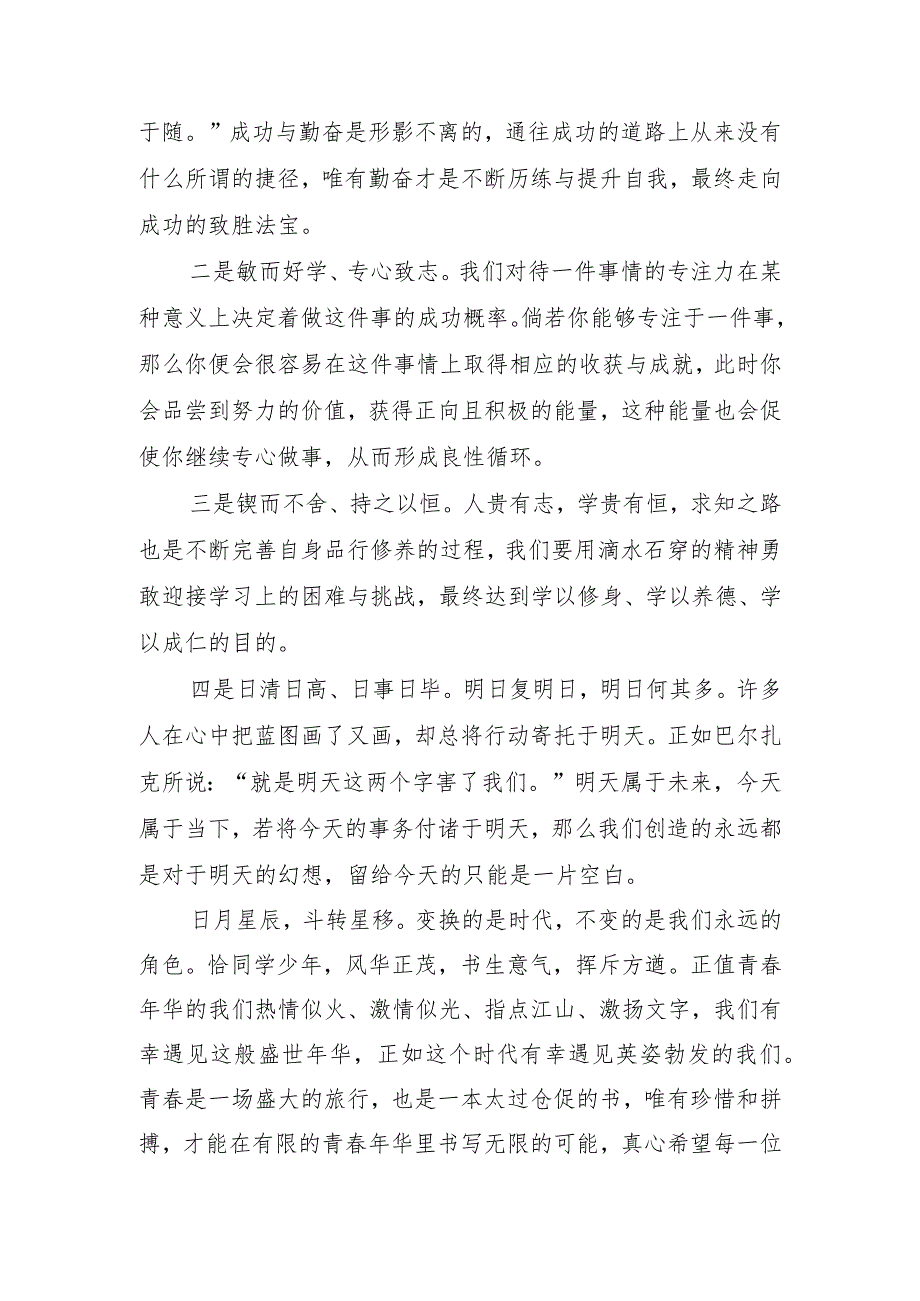 于随。”成功与勤奋是形影不离的，通往成功的道路上从来没有
什么所谓的捷径，唯有勤奋才是不断历练与提升自我，最终走向
成功的致胜法宝。
二是敏而好学、专心致志。我们对待一件事情的专注力在某
种意义上决定着做这件事的成功概率。倘若你能够专注于一件事，
那么你便会很容易在这件事情上取得相应的收获与成就，此时你
会品尝到努力的价值，获得正向且积极的能量，这种能量也会促
使你继续专心做事，从而形成良性循环。
三是锲而不舍、持之以恒。人贵有志，学贵有恒，求知之路
也是不断完善自身品行修养的过程，我们要用滴水石穿的精神勇
敢迎接学习上的困难与挑战，最终达到学以修身、学以养德、学
以成仁的目的。
四是日清日高、日事日毕。明日复明日，明日何其多。许多
人在心中把蓝图画了又画，却总将行动寄托于明天。正如巴尔扎
克所说：“就是明天这两个字害了我们。”明天属于未来，今天
属于当下，若将今天的事务付诸于明天，那么我们创造的永远都
是对于明天的幻想，留给今天的只能是一片空白。
日月星辰，斗转星移。变换的是时代，不变的是我们永远的
角色。恰同学少年，风华正茂，书生意气，挥斥方遒。正值青春
年华的我们热情似火、激情似光、指点江山、激扬文字，我们有
幸遇见这般盛世年华，正如这个时代有幸遇见英姿勃发的我们。
青春是一场盛大的旅行，也是一本太过仓促的书，唯有珍惜和拼
搏，才能在有限的青春年华里书写无限的可能，真心希望每一位